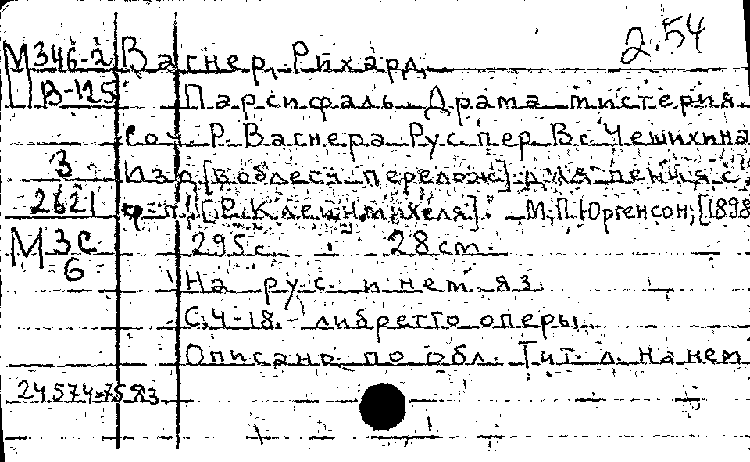 2.54
М346-2 Вагнер, Рихард.
В-125 Парсифаль. Драма мистерия
Соч. Р. Вагнера Рус. пер. Вс. Чешихина
3 Изд. [в облегч. перелож.] для пения с
2621 ф-п. [Р. Клейнмихеля]. М., П. Юргенсон, [1898
М3С 295 с. 28 cm.
6
На рус. и нем. яз.
С. 4-18. либретто оперы.
Описано по обл. Тит. л. на нем
24.574-75 яз